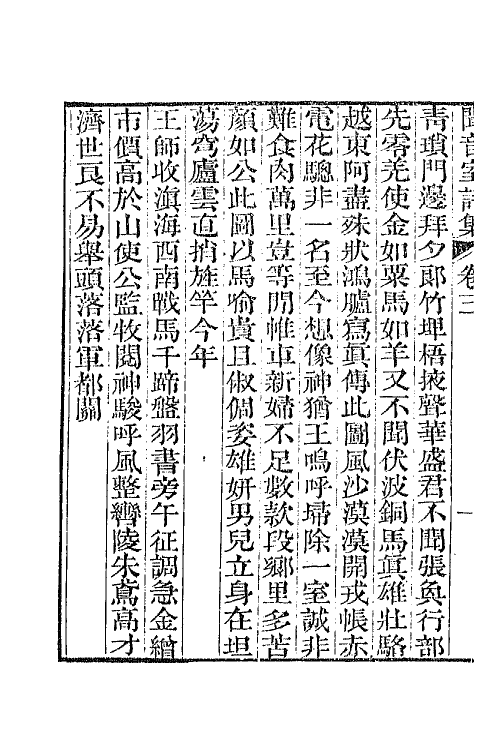 聞音室詩集 卷三 一
靑瑣門邊拜夕郞竹埤梧掖聲華盛君不聞張奐行部
先零羌使金如粟馬如羊又不聞伏波銅馬眞雄壯駱
越東阿盡殊狀鴻臚寫眞傳此圖風沙漠漠開戎帳赤
電花驄非一名至今想像神猶王嗚呼埽除一室誠非
難食肉萬里豈等閒帷車新婦不足數款段鄉里多苦
顏如公此圖以馬喻貴且俶倜姿雄妍男兒立身在坦
蕩穹廬雲迫捎旌竿今年
王師收滇海西南戰馬千蹄盤羽書旁午征調急金繒
市價高於山使公監牧閱神駿呼風整轡陵朱鳶高才
濟世良不易舉頭落落軍都關